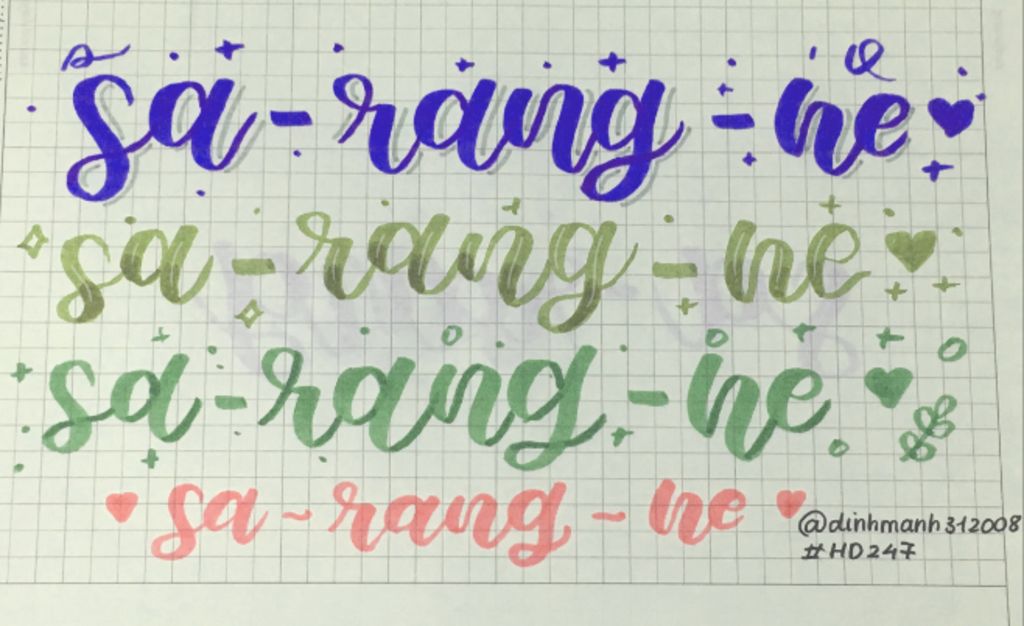 sa-rang-ne
sa-rang-ne
sa-rang-ne
sa~rang~ne
@dinhmanh312008
#HD247